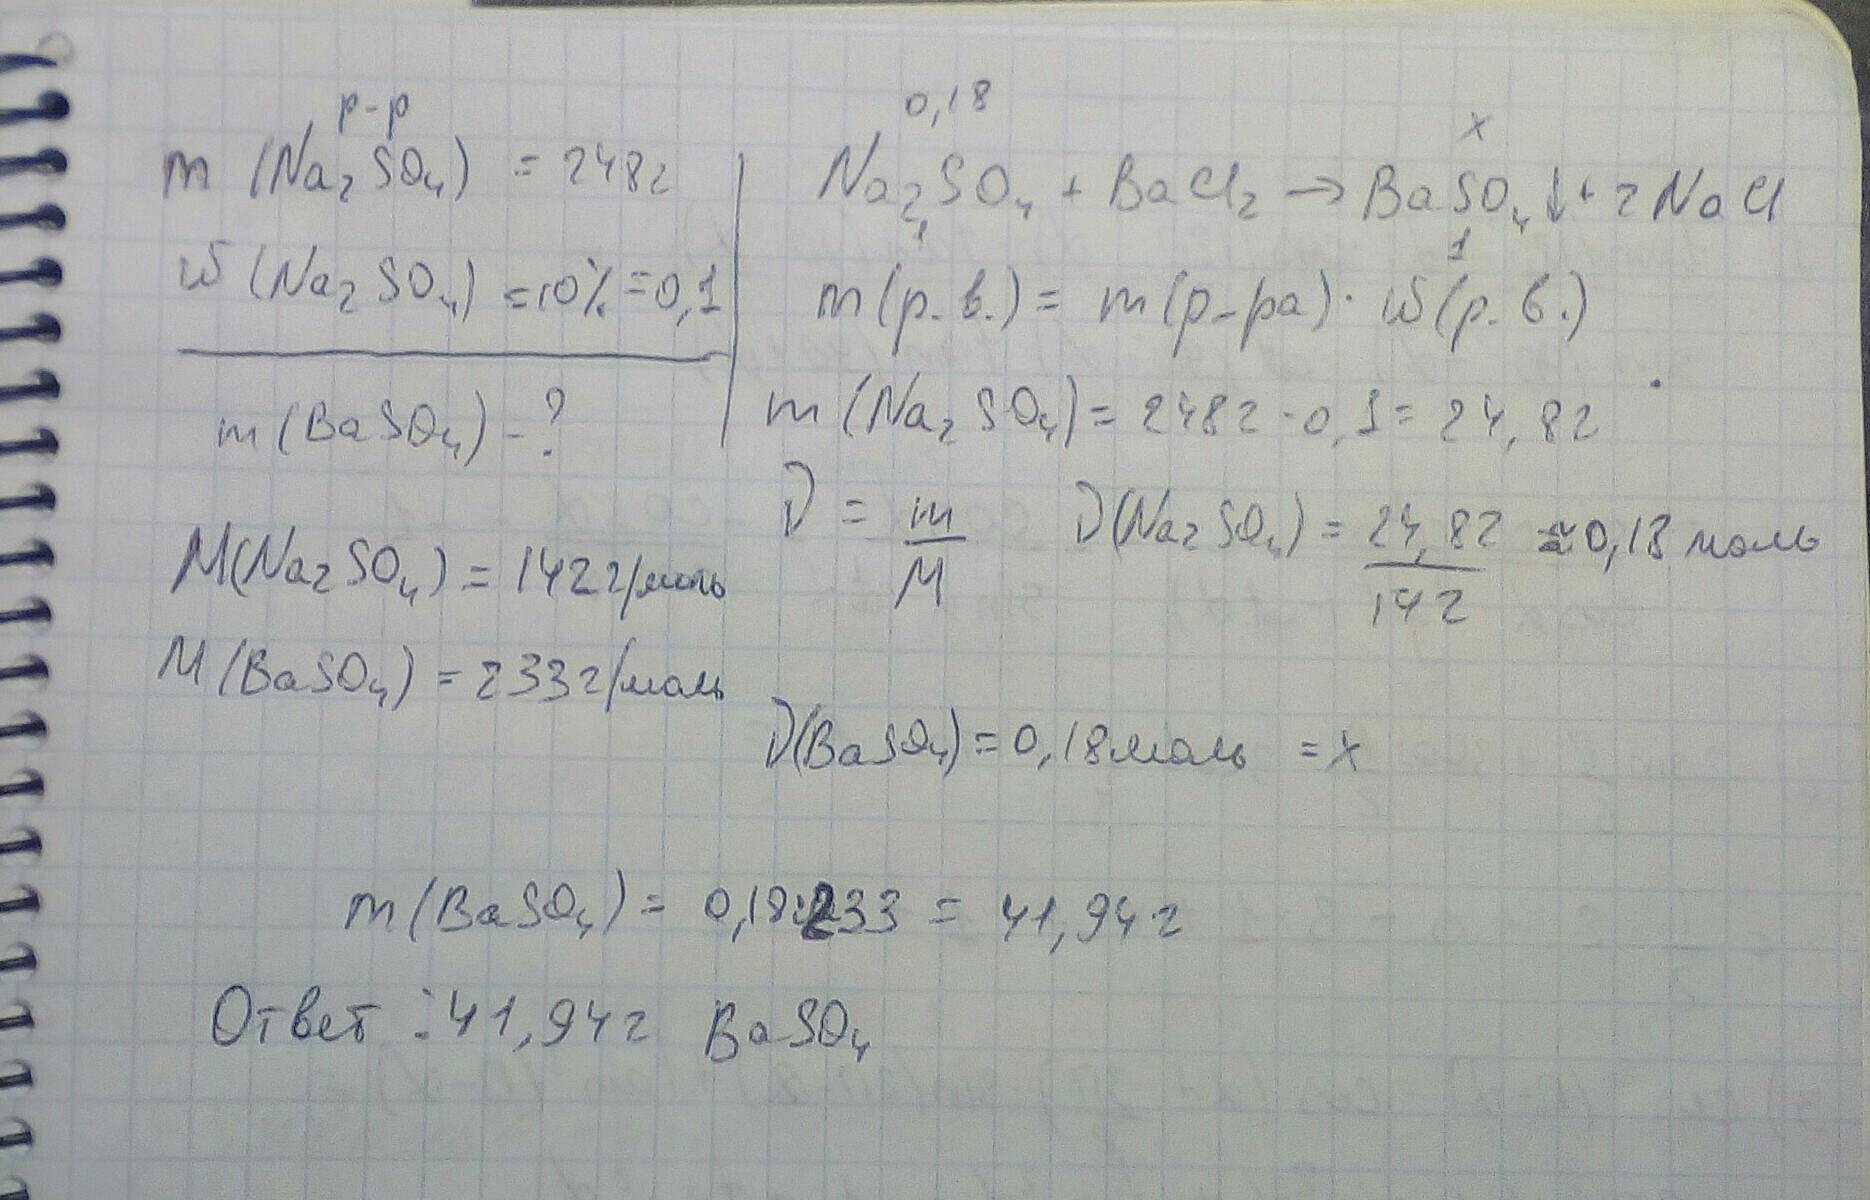 m (Na₂SO₄) р-р = 248г
ω (Na₂SO₄) = 10% = 0,1
m (BaSO₄) - ?
M(Na₂SO₄) = 142 г/моль
M (BaSO₄) = 233 г/моль
0,18 x
Na₂SO₄ + BaCl₂ → BaSO₄↓ + 2NaCl
1 1
m(р.в.) = m(р-ра) · ω(р.в.)
m (Na₂SO₄) = 248г · 0,1 = 24,8г
ν = m/M ν(Na₂SO₄) = 24,8г/142 ≈ 0,18 моль
ν(BaSO₄) = 0,18 моль = x
m (BaSO₄) = 0,18·233 = 41,94г
Ответ: 41,94г BaSO₄